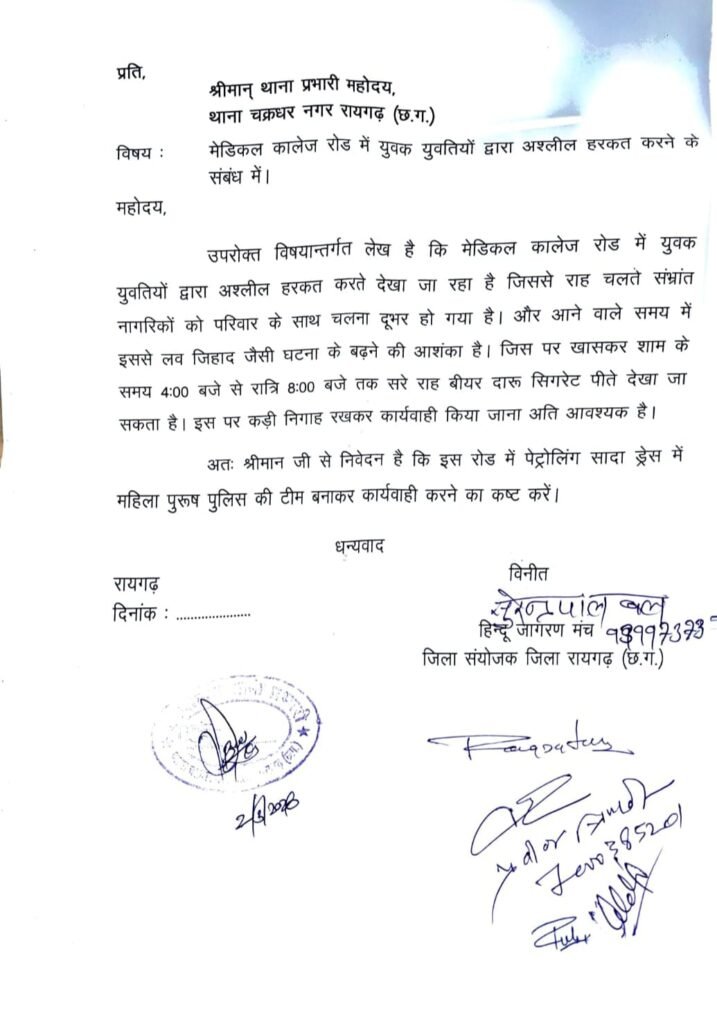 प्रति,
श्रीमान् थाना प्रभारी महोदय,
थाना चक्रधर नगर रायगढ़ (छ.ग.)
विषय : मेडिकल कालेज रोड में युवक युवतियों द्वारा अश्लील हरकत करने के
संबंध में।
महोदय,
उपरोक्त विषयान्तर्गत लेख है कि मेडिकल कालेज रोड में युवक
युवतियों द्वारा अश्लील हरकत करते देखा जा रहा है जिससे राह चलते संभ्रांत
नागरिकों को परिवार के साथ चलना दूभर हो गया है। और आने वाले समय में
इससे लव जिहाद जैसी घटना के बढ़ने की आशंका है। जिस पर खासकर शाम के
समय 4:00 बजे से रात्रि 8:00 बजे तक सरे राह बीयर दारू सिगरेट पीते देखा जा
सकता है। इस पर कड़ी निगाह रखकर कार्यवाही किया जाना अति आवश्यक है।
अतः श्रीमान जी से निवेदन है कि इस रोड में पेट्रोलिंग सादा ड्रेस में
महिला पुरूष पुलिस की टीम बनाकर कार्यवाही करने का कष्ट करें।
धन्यवाद
रायगढ़
दिनांक : .....................
विनीत
सुरेन्द्रपाल
हिन्दू जागरण मंच
जिला संयोजक जिला रायगढ़ (छ.ग.)